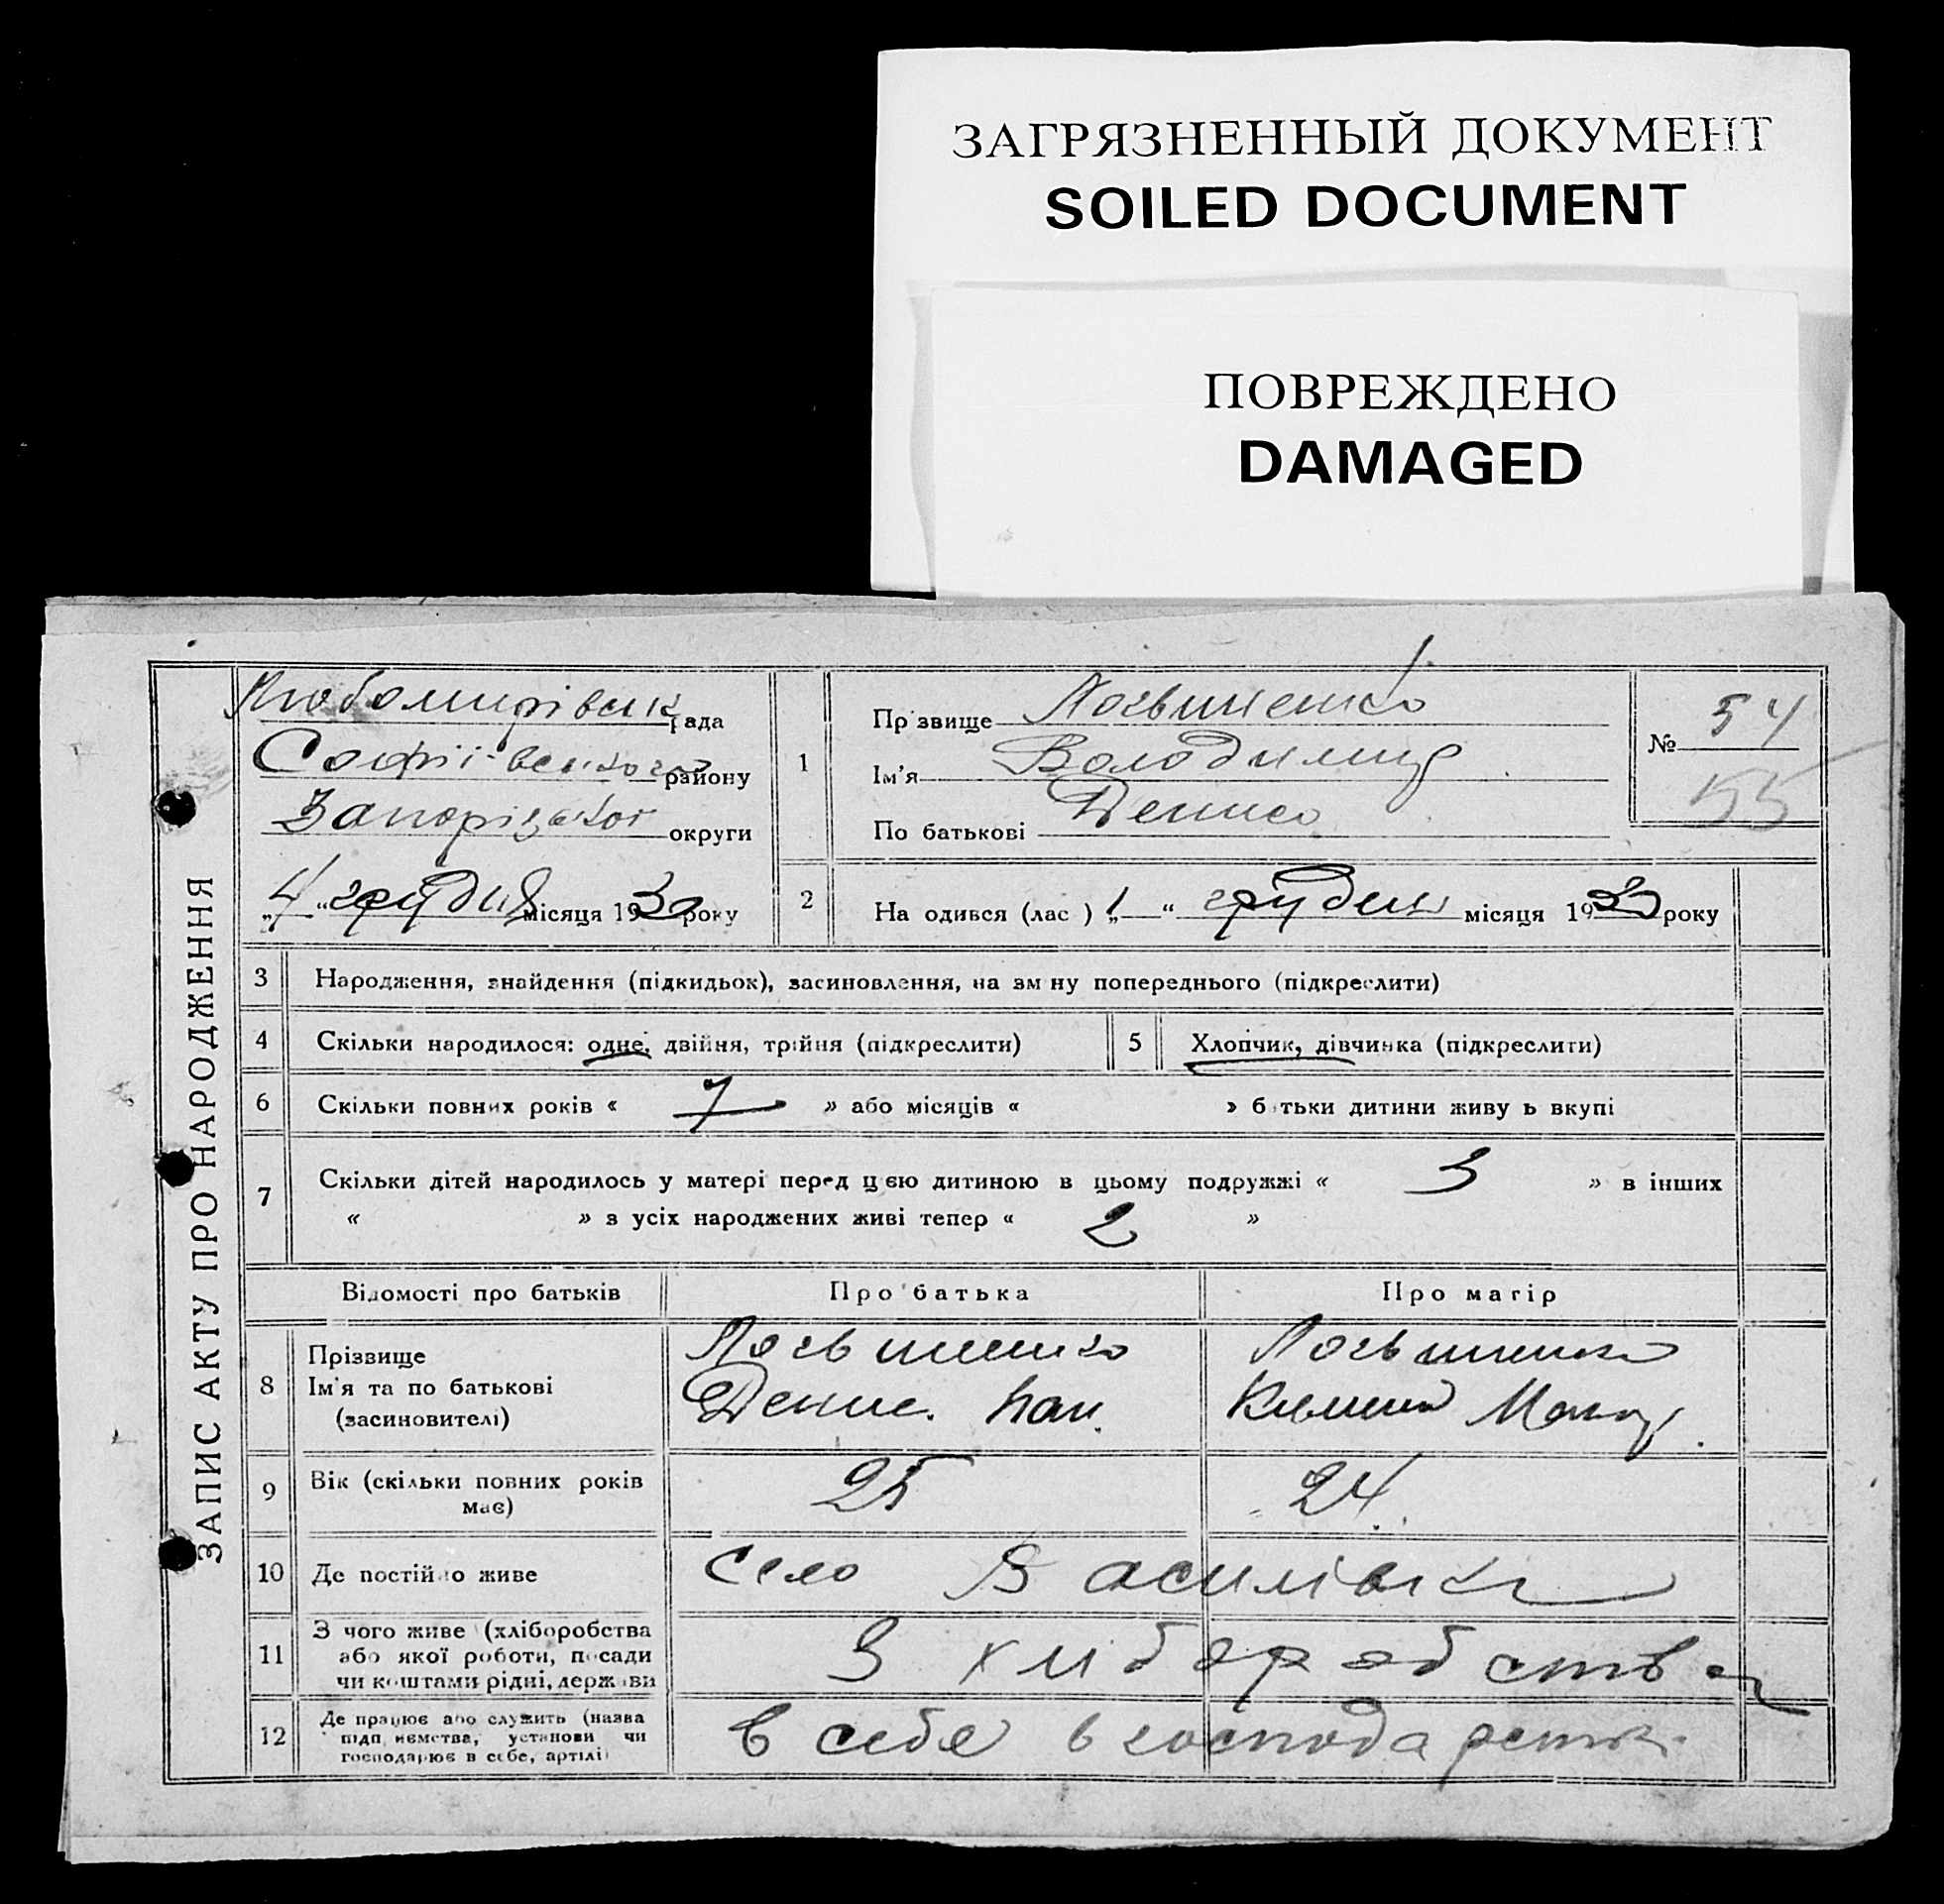 ЗАГРЯЗНЕННЫЙ ДОКУМЕНТ
SOILED DOCUMENT
ПОВРЕЖДЕНО
DAMAGED
ЗАПИС АКТУ ПРО НАРОДЖЕННЯ
Любомирівськ рада
Софіївського району
округи
„4“ грудня місяця 1930 року
1
Прізвище Логвиненко
Ім'я Володимир
По батькові Денисо
№ 54
55
2
На одився (лас ) „1“ грудня місяця 1930 року
3 Народження, знайдення (підкидьок), засиновлення, на зм ну попереднього (підкреслити)
4 Скільки народилося: одне, двійня, трійня (підкреслити)
5 Хлопчик, дівчинка (підкреслити)
6 Скільки повних років « 7 » або місяців « » б тьки дитини живу ь вкупі
7 Скільки дітей народилось у матері перед цією дитиною в цьому подружжі « 3 » в інших
« » з усіх народжених живі тепер « 2 »
Відомості про батьків Про батька Про матір
8 Прізвище
Ім'я та по батькові
(засиновителі)
Логвиненко
Денис.
Логвиненко
9 Вік (скільки повних років
має)
25 24
10 Де постійно живе село Василівка
11 З чого живе (хліборобства
або якої роботи, посади
чи коштами рідні, держави
З хліборобства
12 Де працює або служить (назва
підп иємства, установи чи
господарює в себе, артілі)
в себе в господарстві